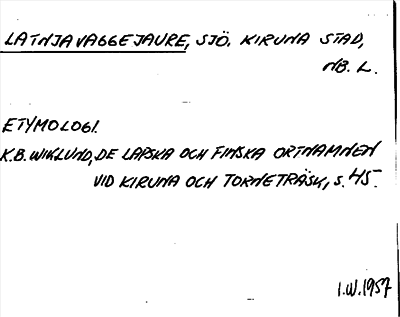 LATNJAVAGGEJAURE, SJÖ. KIRUNA STAD,
NB. L.
ETYMOLOGI.
K.B. WIKLUND, DE LAPSKA OCH FINSKA ORTNAMNEN
VID KIRUNA OCH TORNETRÄSK, S. 45.
I.W. 1957